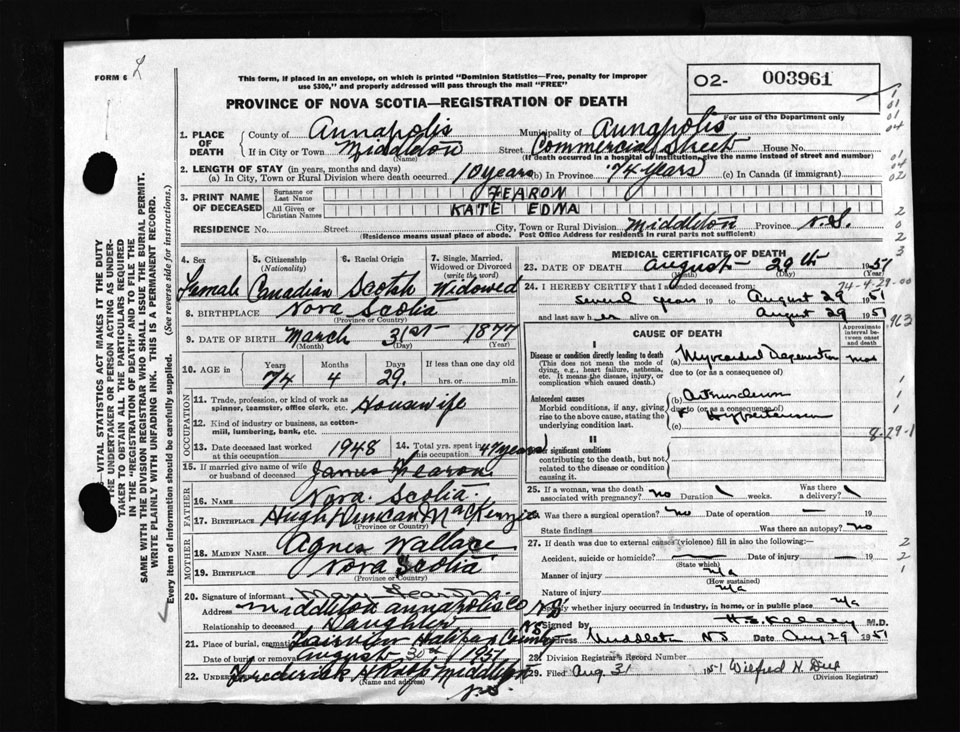 FORM 6
This form, if placed in an envelope, on which is printed "Dominion Statistics—Free, penalty for improper
use $300," and properly addressed will pass through the mail "FREE"
PROVINCE OF NOVA SCOTIA—REGISTRATION OF DEATH
O2- 003961
For use of the Department only
1. PLACE OF DEATH County of Annapolis Municipality of Annapolis
If in City or Town Middleton Street Commercial Street House No.
(Name) (If death occurred in a hospital or institution, give the name instead of street and number)
2. LENGTH OF STAY (in years, months and days)
(a) In City, Town or Rural Division where death occurred 10 years (b) In Province 74 years (c) In Canada (if immigrant)
3. PRINT NAME OF DECEASED Surname or Last Name FEARON
All Given or Christian Names KATE EDNA
RESIDENCE No. Street City, Town or Rural Division Middleton Province N.S.
(Residence means usual place of abode. Post Office Address for residents in rural parts not sufficient)
4. Sex Female
5. Citizenship (Nationality) Canadian
6. Racial Origin Scotch
7. Single, Married, Widowed or Divorced (write the word) Widowed
8. BIRTHPLACE Nova Scotia
(Province or Country)
9. DATE OF BIRTH March 31st 1877
(Month) (Day) (Year)
10. AGE in Years 74 Months 4 Days 29 If less than one day old hrs. or min.
OCCUPATION
11. Trade, profession, or kind of work as spinner, teamster, office clerk, etc. Housewife
12. Kind of industry or business, as cotton-mill, lumbering, bank, etc.
13. Date deceased last worked at this occupation 1948
14. Total yrs. spent in this occupation 47 years
15. If married give name of wife or husband of deceased James Fearon
FATHER
16. NAME Nova Scotia
17. BIRTHPLACE Hugh Duncan MacKenzie
(Province or Country)
MOTHER
18. MAIDEN NAME Agnes Wallace
19. BIRTHPLACE Nova Scotia
(Province or Country)
20. Signature of informant Mary Fearon
Address Middleton Annapolis Co N.S
Relationship to deceased Daughter
21. Place of burial, Fairview Halifax County NS
Date of burial or removal August 30th 1951
22. Frederick Middleton
N.S.
MEDICAL CERTIFICATE OF DEATH
23. DATE OF DEATH August 29th 1951
(Month) (Day) (Year)
24. I HEREBY CERTIFY that I attended deceased from:
several years 19 to August 29 1951
and last saw her alive on August 29 1951
CAUSE OF DEATH
Approximate interval between onset and death
I
Disease or condition directly leading to death (a) Myocardial Degeneration mos
(This does not mean the mode of dying, e.g., heart failure, asthenia, etc. It means the disease, injury, or complication which caused death.)
due to (or as a consequence of)
Antecedent causes (b)
Morbid conditions, if any, giving rise to the above cause, stating the underlying condition last.
due to (or as a consequence of)
Hypertension
(c)
II
significant conditions
contributing to the death, but not related to the disease or condition causing it.
25. If a woman, was the death associated with pregnancy? no Duration weeks. Was there a delivery?
Was there a surgical operation? no Date of operation — 19
State findings Was there an autopsy? no
27. If death was due to external causes (violence) fill in also the following:—
Accident, suicide or homicide? — Date of injury — 19
(State which)
Manner of injury n/a
(How sustained)
Nature of injury n/a
Specify whether injury occurred in industry, in home, or in public place n/a
Signed by H.S. Kelley M.D.
Address Middleton NS Date Aug 29 1951
28. Division Registrar's Record Number
29. Filed Aug 31 1951 Wilfred N.
(Division Registrar)
24-9-29-00
963
8-29-1
—VITAL STATISTICS ACT MAKES IT THE DUTY
THE UNDERTAKER OR PERSON ACTING AS UNDER-
TAKER TO OBTAIN ALL THE PARTICULARS REQUIRED
IN THE "REGISTRATION OF DEATH" AND TO FILE THE
SAME WITH THE DIVISION REGISTRAR WHO SHALL ISSUE THE BURIAL PERMIT.
WRITE PLAINLY WITH UNFADING INK. THIS IS A PERMANENT RECORD.
Every item of information should be carefully supplied. (See reverse side for instructions.)